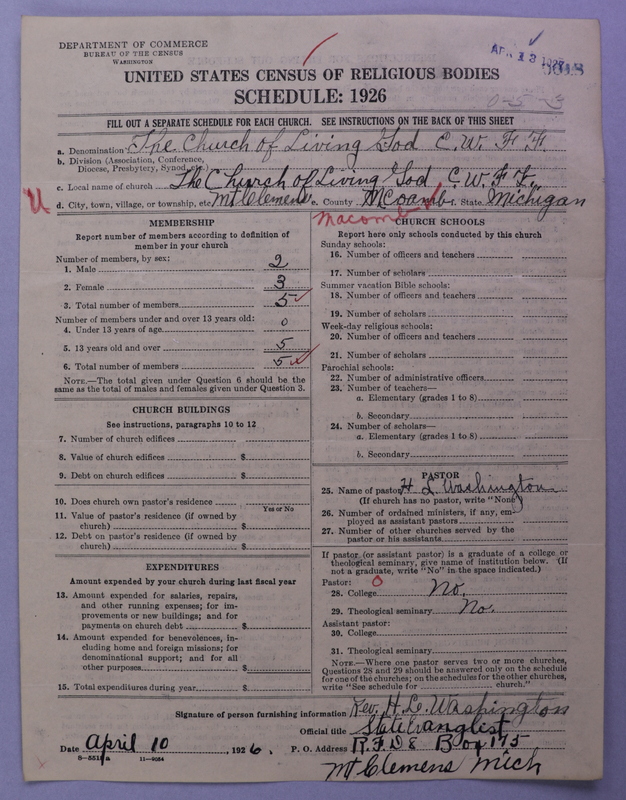 DEPARTMENT OF COMMERCE
BUREAU OF THE CENSUS
WASHINGTON
UNITED STATES CENSUS OF RELIGIOUS BODIES
SCHEDULE: 1926
FILL OUT A SEPARATE SCHEDULE FOR EACH CHURCH. SEE INSTRUCTIONS ON THE BACK OF THIS SHEET
a. Denomination The Church of Living God C. W. F. F.
b. Division (Association, Conference, Diocese, Presbytery, Synod, etc.)
c. Local name of church The Church of Living God C. W. F. F.
d. City, town, village, or township, etc. Mt Clemens e. County McComb f. State Michigan
Macomb
MEMBERSHIP
Report number of members according to definition of member in your church
Number of members, by sex:
1. Male 2
2. Female 3
3. Total number of members 5
Number of members under and over 13 years old:
4. Under 13 years of age 0
5. 13 years old and over 5
6. Total number of members 5
NOTE.—The total given under Question 6 should be the same as the total of males and females given under Question 3.
CHURCH BUILDINGS
See instructions, paragraphs 10 to 12
7. Number of church edifices
8. Value of church edifices $
9. Debt on church edifices $
10. Does church own pastor's residence
Yes or No
11. Value of pastor's residence (if owned by church) $
12. Debt on pastor's residence (if owned by church) $
EXPENDITURES
Amount expended by your church during last fiscal year
13. Amount expended for salaries, repairs, and other running expenses; for improvements or new buildings; and for payments on church debt $
14. Amount expended for benevolences, including home and foreign missions; for denominational support; and for all other purposes $
15. Total expenditures during year $
CHURCH SCHOOLS
Report here only schools conducted by this church
Sunday schools:
16. Number of officers and teachers
17. Number of scholars
Summer vacation Bible schools:
18. Number of officers and teachers
19. Number of scholars
Week-day religious schools:
20. Number of officers and teachers
21. Number of scholars
Parochial schools:
22. Number of administrative officers
23. Number of teachers—
a. Elementary (grades 1 to 8)
b. Secondary
24. Number of scholars—
a. Elementary (grades 1 to 8)
b. Secondary
PASTOR
25. Name of pastor H L Washington
(If church has no pastor, write "None")
26. Number of ordained ministers, if any, employed as assistant pastors
27. Number of other churches served by the pastor or his assistants
If pastor (or assistant pastor) is a graduate of a college or theological seminary, give name of institution below. (If not a graduate, write "No" in the space indicated.)
Pastor:
28. College No.
29. Theological seminary No.
Assistant pastor:
30. College
31. Theological seminary
NOTE.—Where one pastor serves two or more churches, Questions 28 and 29 should be answered only on the schedule for one of the churches; on the schedules for the other churches, write "See schedule for church."
Signature of person furnishing information Rev. H. L. Washington
Official title State Evanglist
Date April 10, 1926. P. O. Address R.F.D 8 Box 175
Mt Clemens Mich
8-551a 11-9054